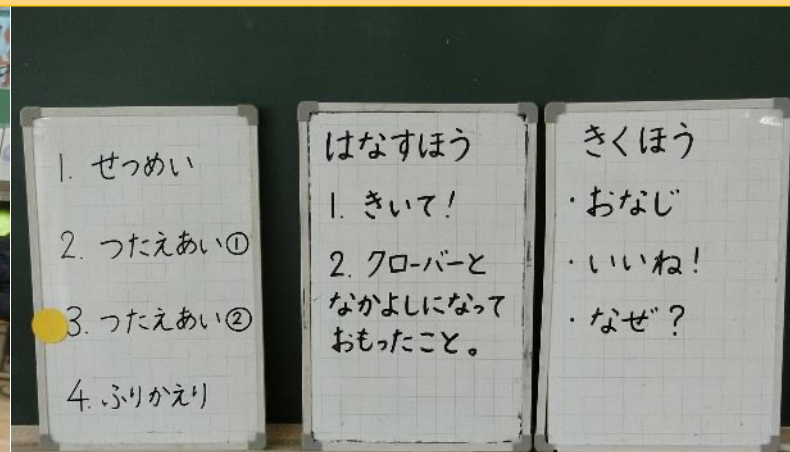 1. せつめい
2. つたえあい①
3. つたえあい②
4. ふりかえり
はなすほう
1. きいて!
2. クローバーと
なかよしになって
おもったこと。
きくほう
・おなじ
・いいね!
・なぜ?